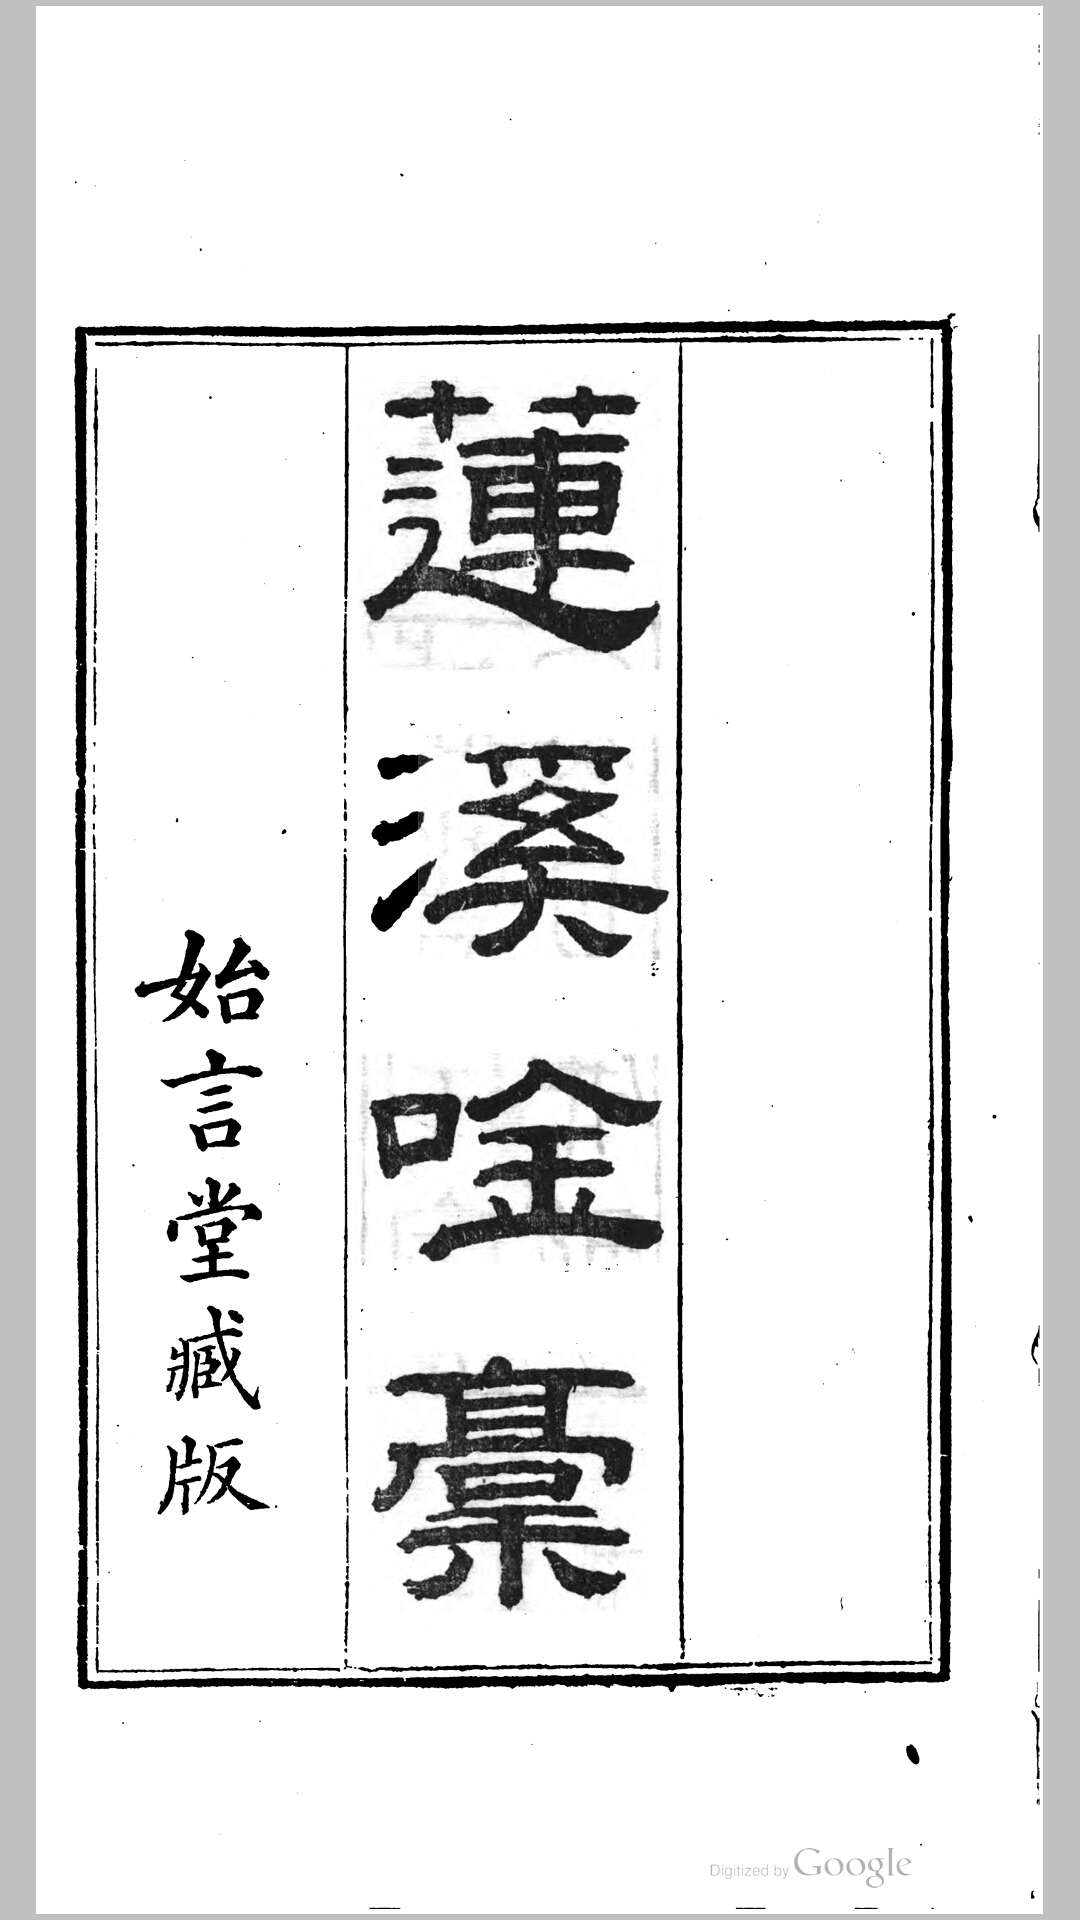 蓮溪唫藁
始言堂臧版
Digitized by Google